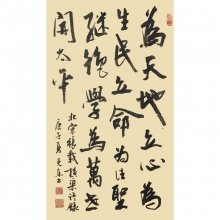 為天地立心為
生民立命為往聖
継絕學為萬世
開太平
北宋張載橫渠語錄
庚子夏